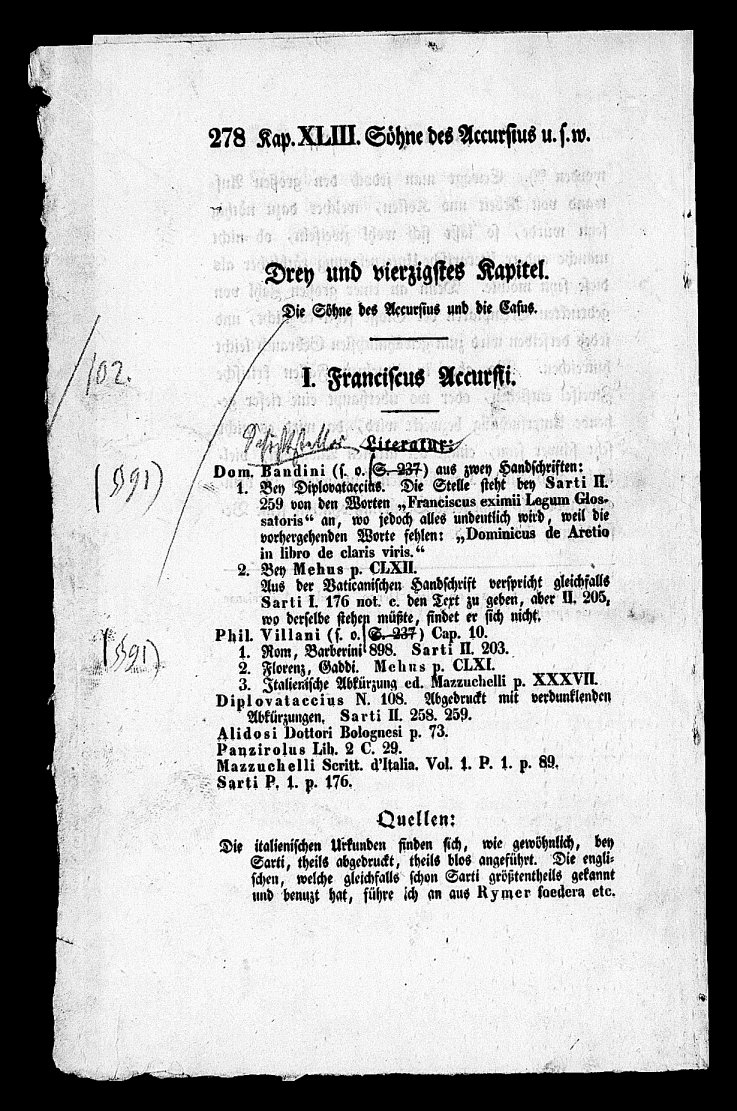 278 Kap. XLIII. Söhne des Accursius u. s. w.
Drey und vierzigstes Kapitel.
Die Söhne des Accursius und die Casus.
I. Franciscus Accursii.
102.
Schriftsteller Literatur:
Dom. Bandini (s. o. S. 237) aus zwey Handschriften:
1. Bey Diplovataccius. Die Stelle steht bey Sarti II.
259 von den Worten „Franciscus eximii Legum Glos-
satoris“ an, wo jedoch alles undeutlich wird, weil die
vorhergehenden Worte fehlen: „Dominicus de Aretio
in libro de claris viris.“
2. Bey Mehus p. CLXII.
Aus der Vaticanischen Handschrift verspricht gleichfalls
Sarti I. 176 not. c. den Text zu geben, aber II. 205,
wo derselbe stehen müßte, findet er sich nicht.
Phil. Villani (s. o. S. 237) Cap. 10.
1. Rom, Barberini 898. Sarti II. 203.
2. Florenz, Gaddi. Mehus p. CLXI.
3. Italienische Abkürzung ed. Mazzuchelli p. XXXVII.
Diplovataccius N. 108. Abgedruckt mit verdunklenden
Abkürzungen. Sarti II. 258. 259.
Alidosi Dottori Bolognesi p. 73.
Panzirolus Lib. 2 C. 29.
Mazzuchelli Scritt. d'Italia. Vol. 1. P. 1. p. 89.
Sarti P. 1. p. 176.
Quellen:
Die italienischen Urkunden finden sich, wie gewöhnlich, bey
Sarti, theils abgedruckt, theils blos angeführt. Die engli-
schen, welche gleichfalls schon Sarti größtentheils gekannt
und benuzt hat, führe ich an aus Rymer foedera etc.